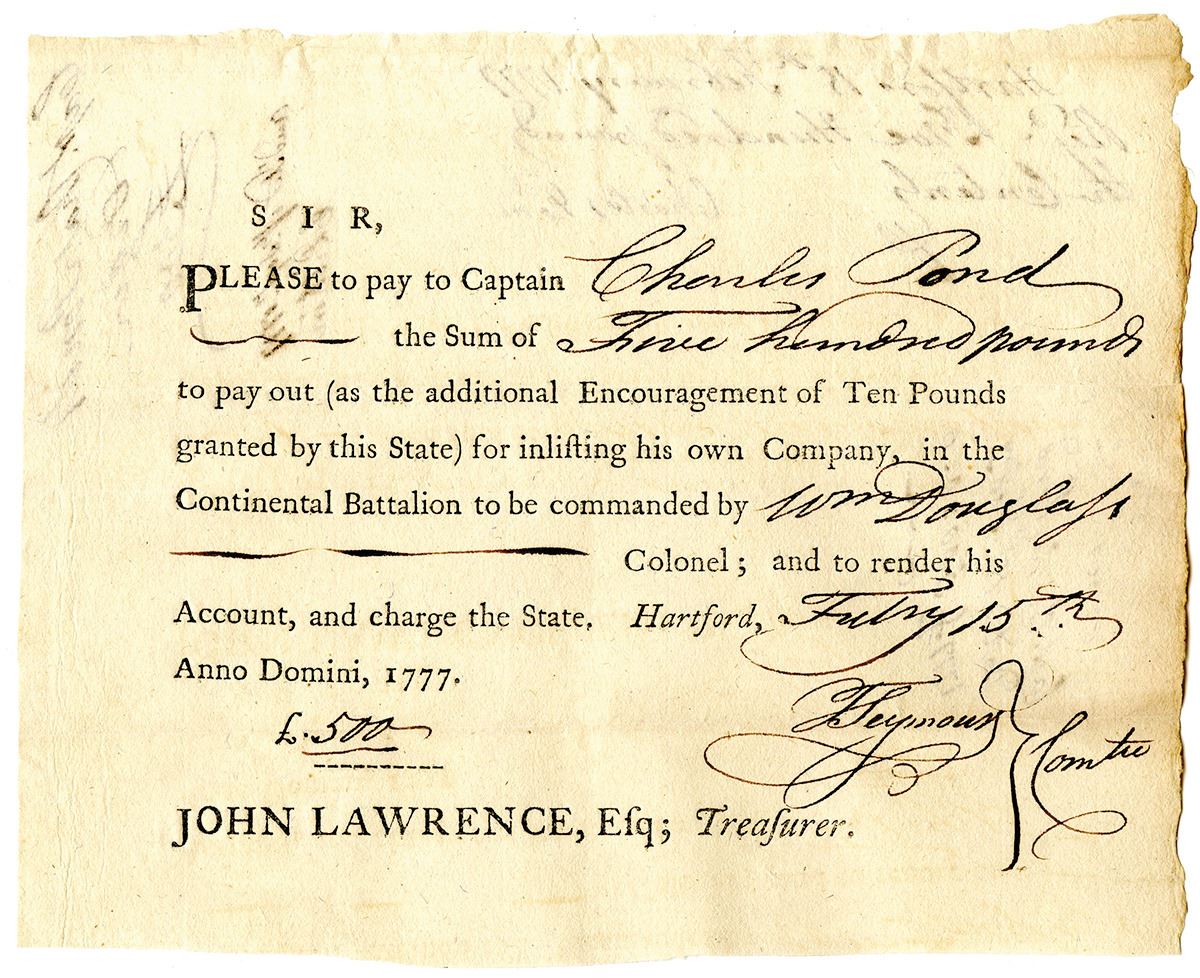 SIR,
PLEASE to pay to Captain Charles Pond
the Sum of Five hundred pounds
to pay out (as the additional Encouragement of Ten Pounds
granted by this State) for inliſting his own Company, in the
Continental Battalion to be commanded by Wm Douglaſs
Colonel; and to render his
Account, and charge the State. Hartford, Febry 15th
Anno Domini, 1777.
£.500
TSeymour } Comtee
JOHN LAWRENCE, Eſq; Treaſurer.